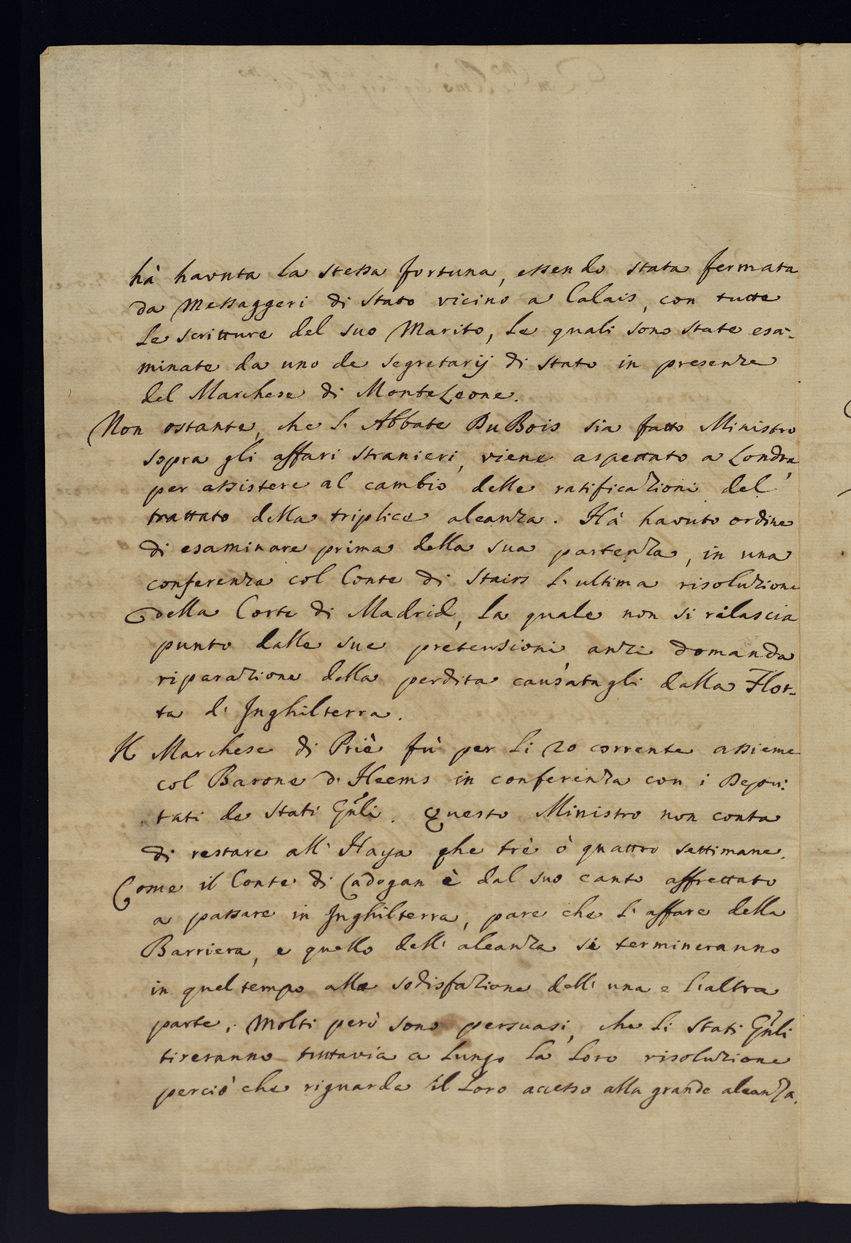 hà havuta la stessa fortuna, essendo stata fermata
da Messaggeri di Stato vicino a Calais, con tutte
le scritture del suo Marito, le quali sono state esa-
minate da uno de Segretarij di Stato in presenza
del Marchese di MonteLeone.
Non ostante, che l'Abbate DuBois sia fatto Ministro
sopra gli affari stranieri, viene aspettato a Londra,
per assistere al cambio delle ratificazioni del
trattato della triplice aleanza. Hà havuto ordine
di esaminare prima della sua partenza, in una
conferenza col Conte di Stairs l'ultima risoluzione
della Corte di Madrid, la quale non si rilascia
punto dalle sue pretensioni anzi domanda
riparazione della perdita caus'atagli dalla Flot-
ta d'Inghilterra.
Il Marchese di Priè fù per li 20 corrente assieme
col Barone d'Heems in conferenza con i Depu-
tati de Stati Gñli. Questo Ministro non conta
di restare all'Haya che trè ò quattro settimane.
Come il Conte di Cadogan è dal suo canto affrettato
a passare in Inghilterra, pare che l'affare della
Barriera, e quello dell'aleanza si termineranno
in quel tempo alla sodisfazione dell'una e l'altra
parte. Molti però sono persuasi, che li Stati Gñli
tireranno tuttavia a lungo la Loro risoluzione
perciò che riguarda il Loro accesso alla grande aleanza.